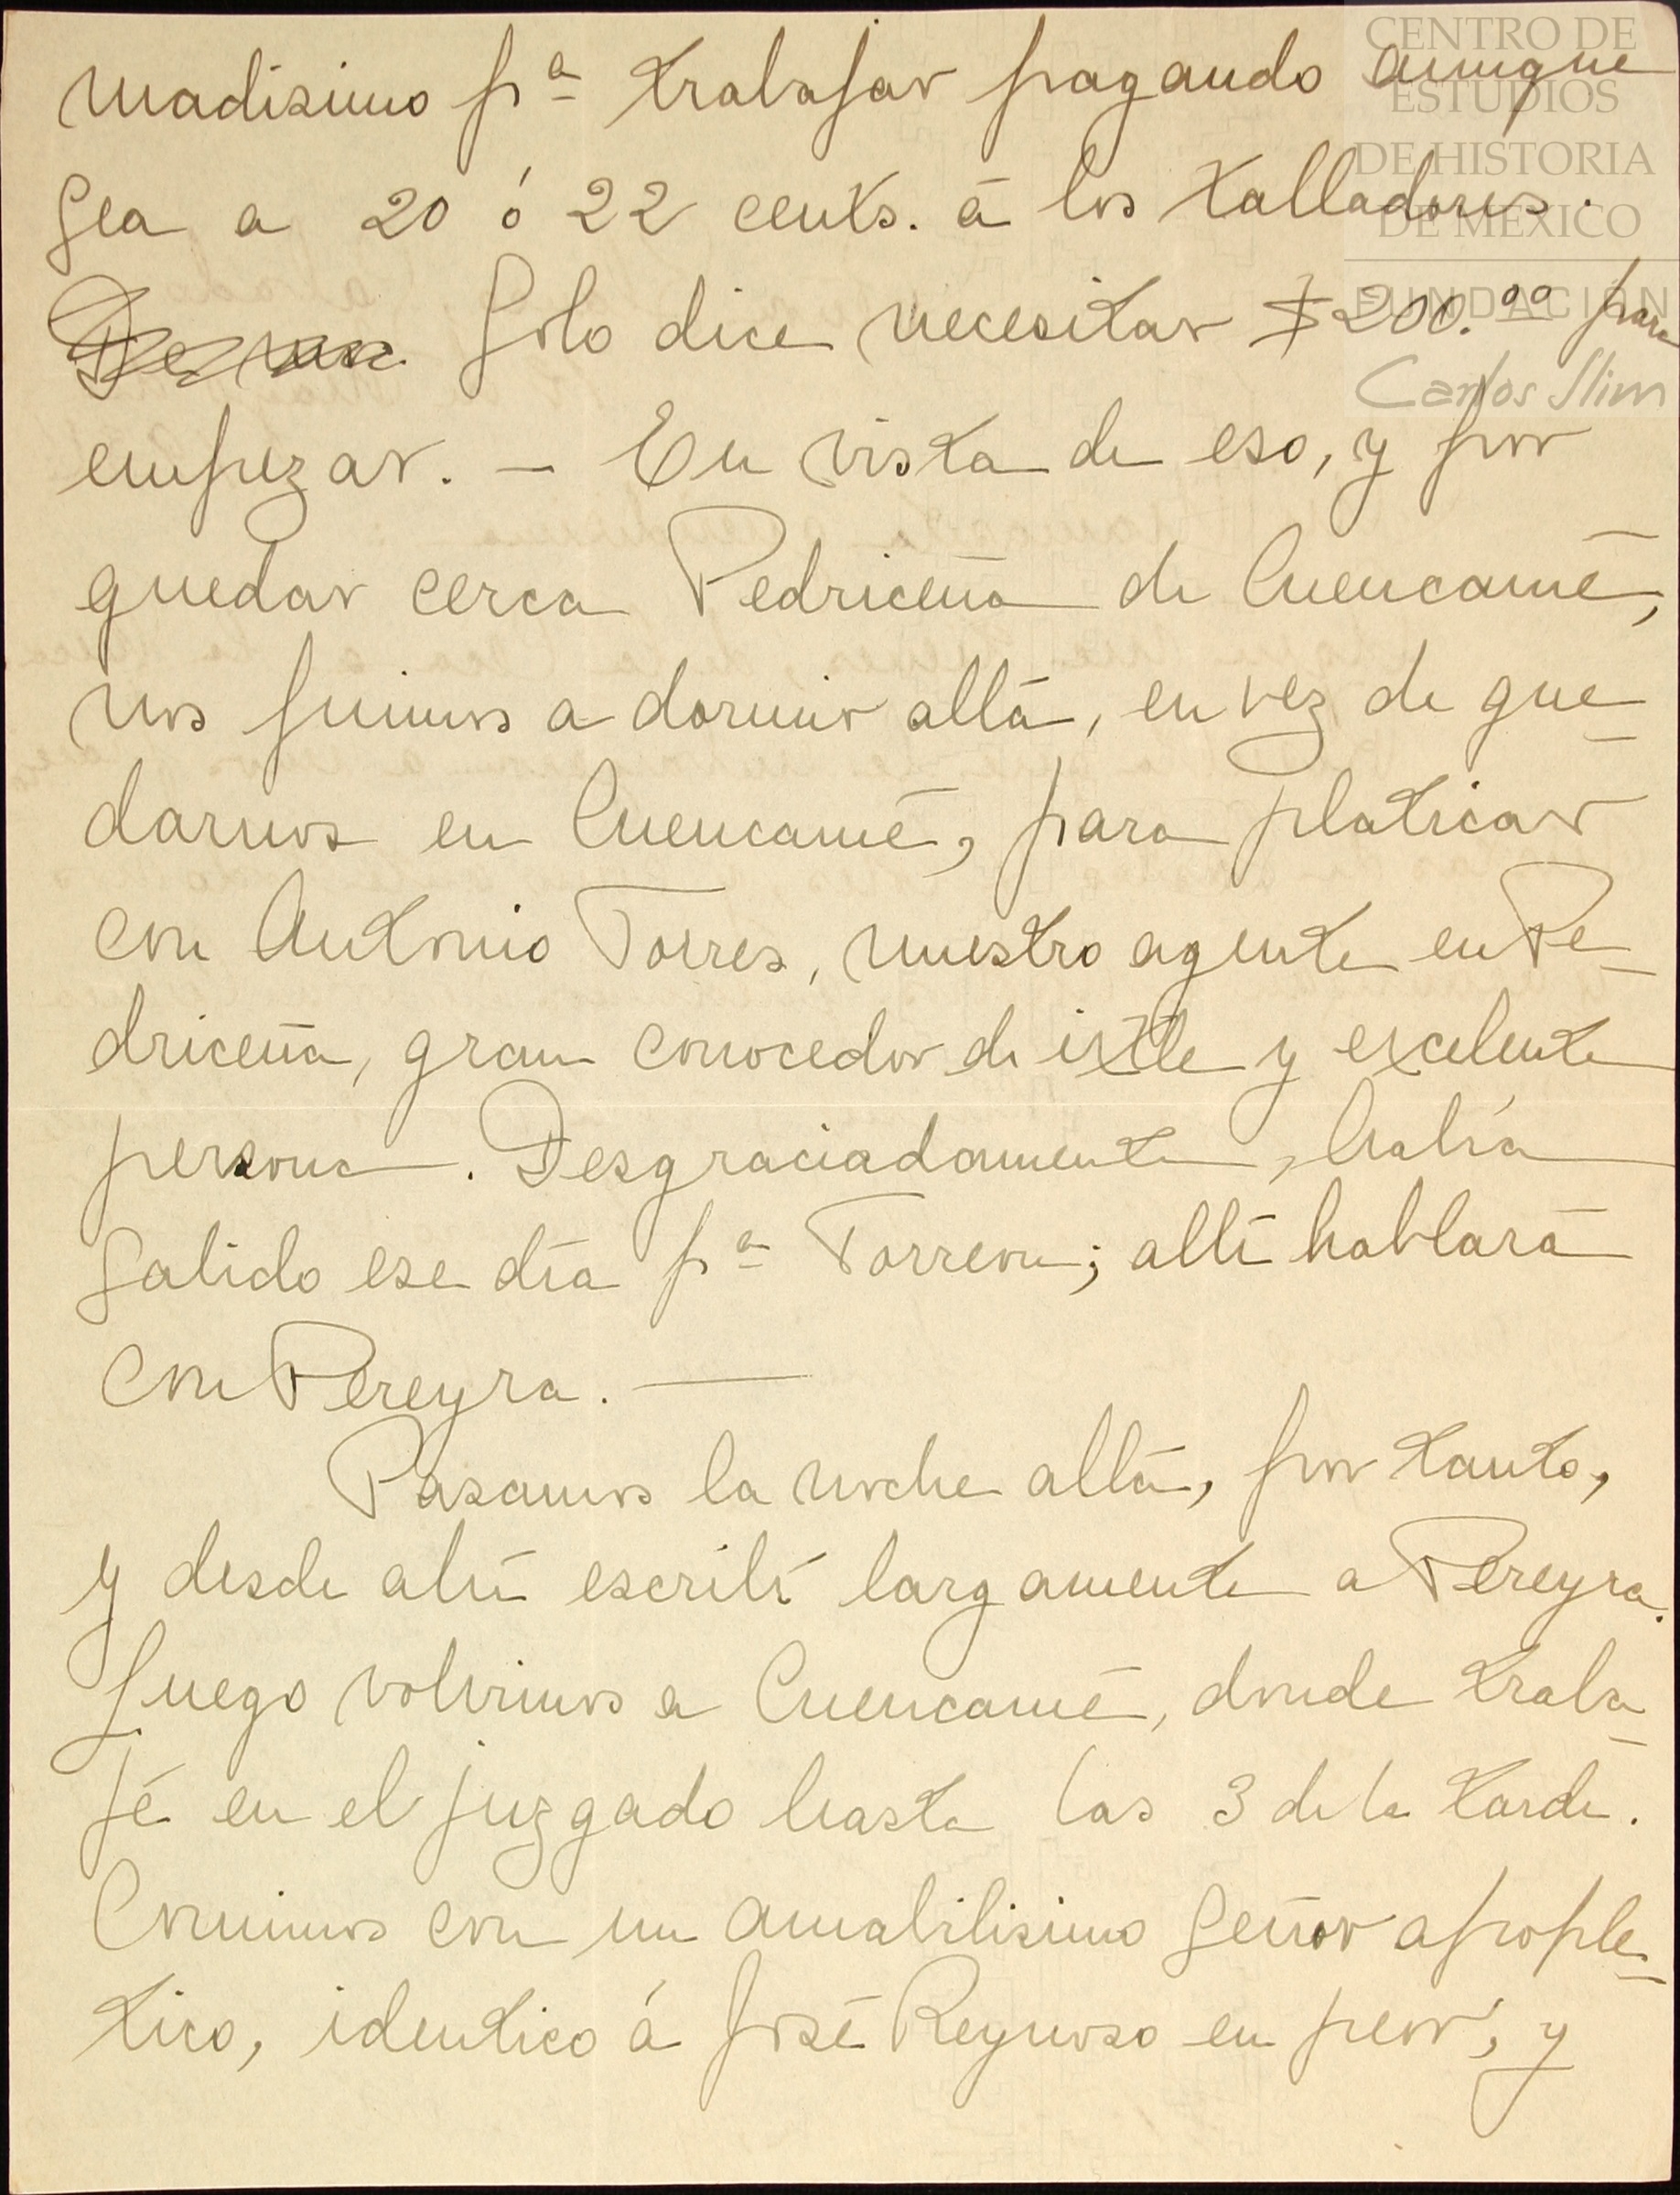 madisimo pª trabajar pagando aunque
sea a 20 ó 22 cents. á los talladores.
Solo dice necesitar $200.00 para
empezar. – En vista de eso, y por
quedar cerca Pedriceña de Cuencamé,
nos fuimos a dormir allá, en vez de que-
darnos en Cuencamé, para platicar
con Antonio Torres, nuestro agente en Pe-
driceña, gran conocedor de ixtle y excelente
persona. Desgraciadamente, había
salido ese día pª Torreon; allí hablará
con Pereyra. —
Pasamos la noche allá, por tanto,
y desde ahí escribí largamente a Pereyra.
Luego volvimos a Cuencamé, donde traba-
jé en el juzgado hasta las 3 de la tarde.
Comimos con un amabilisimo señor apople-
tico, identico á José Reynoso en peor, y
CENTRO DE
ESTUDIOS
DE HISTORIA
DE MÉXICO
FUNDACIÓN
Carlos Slim